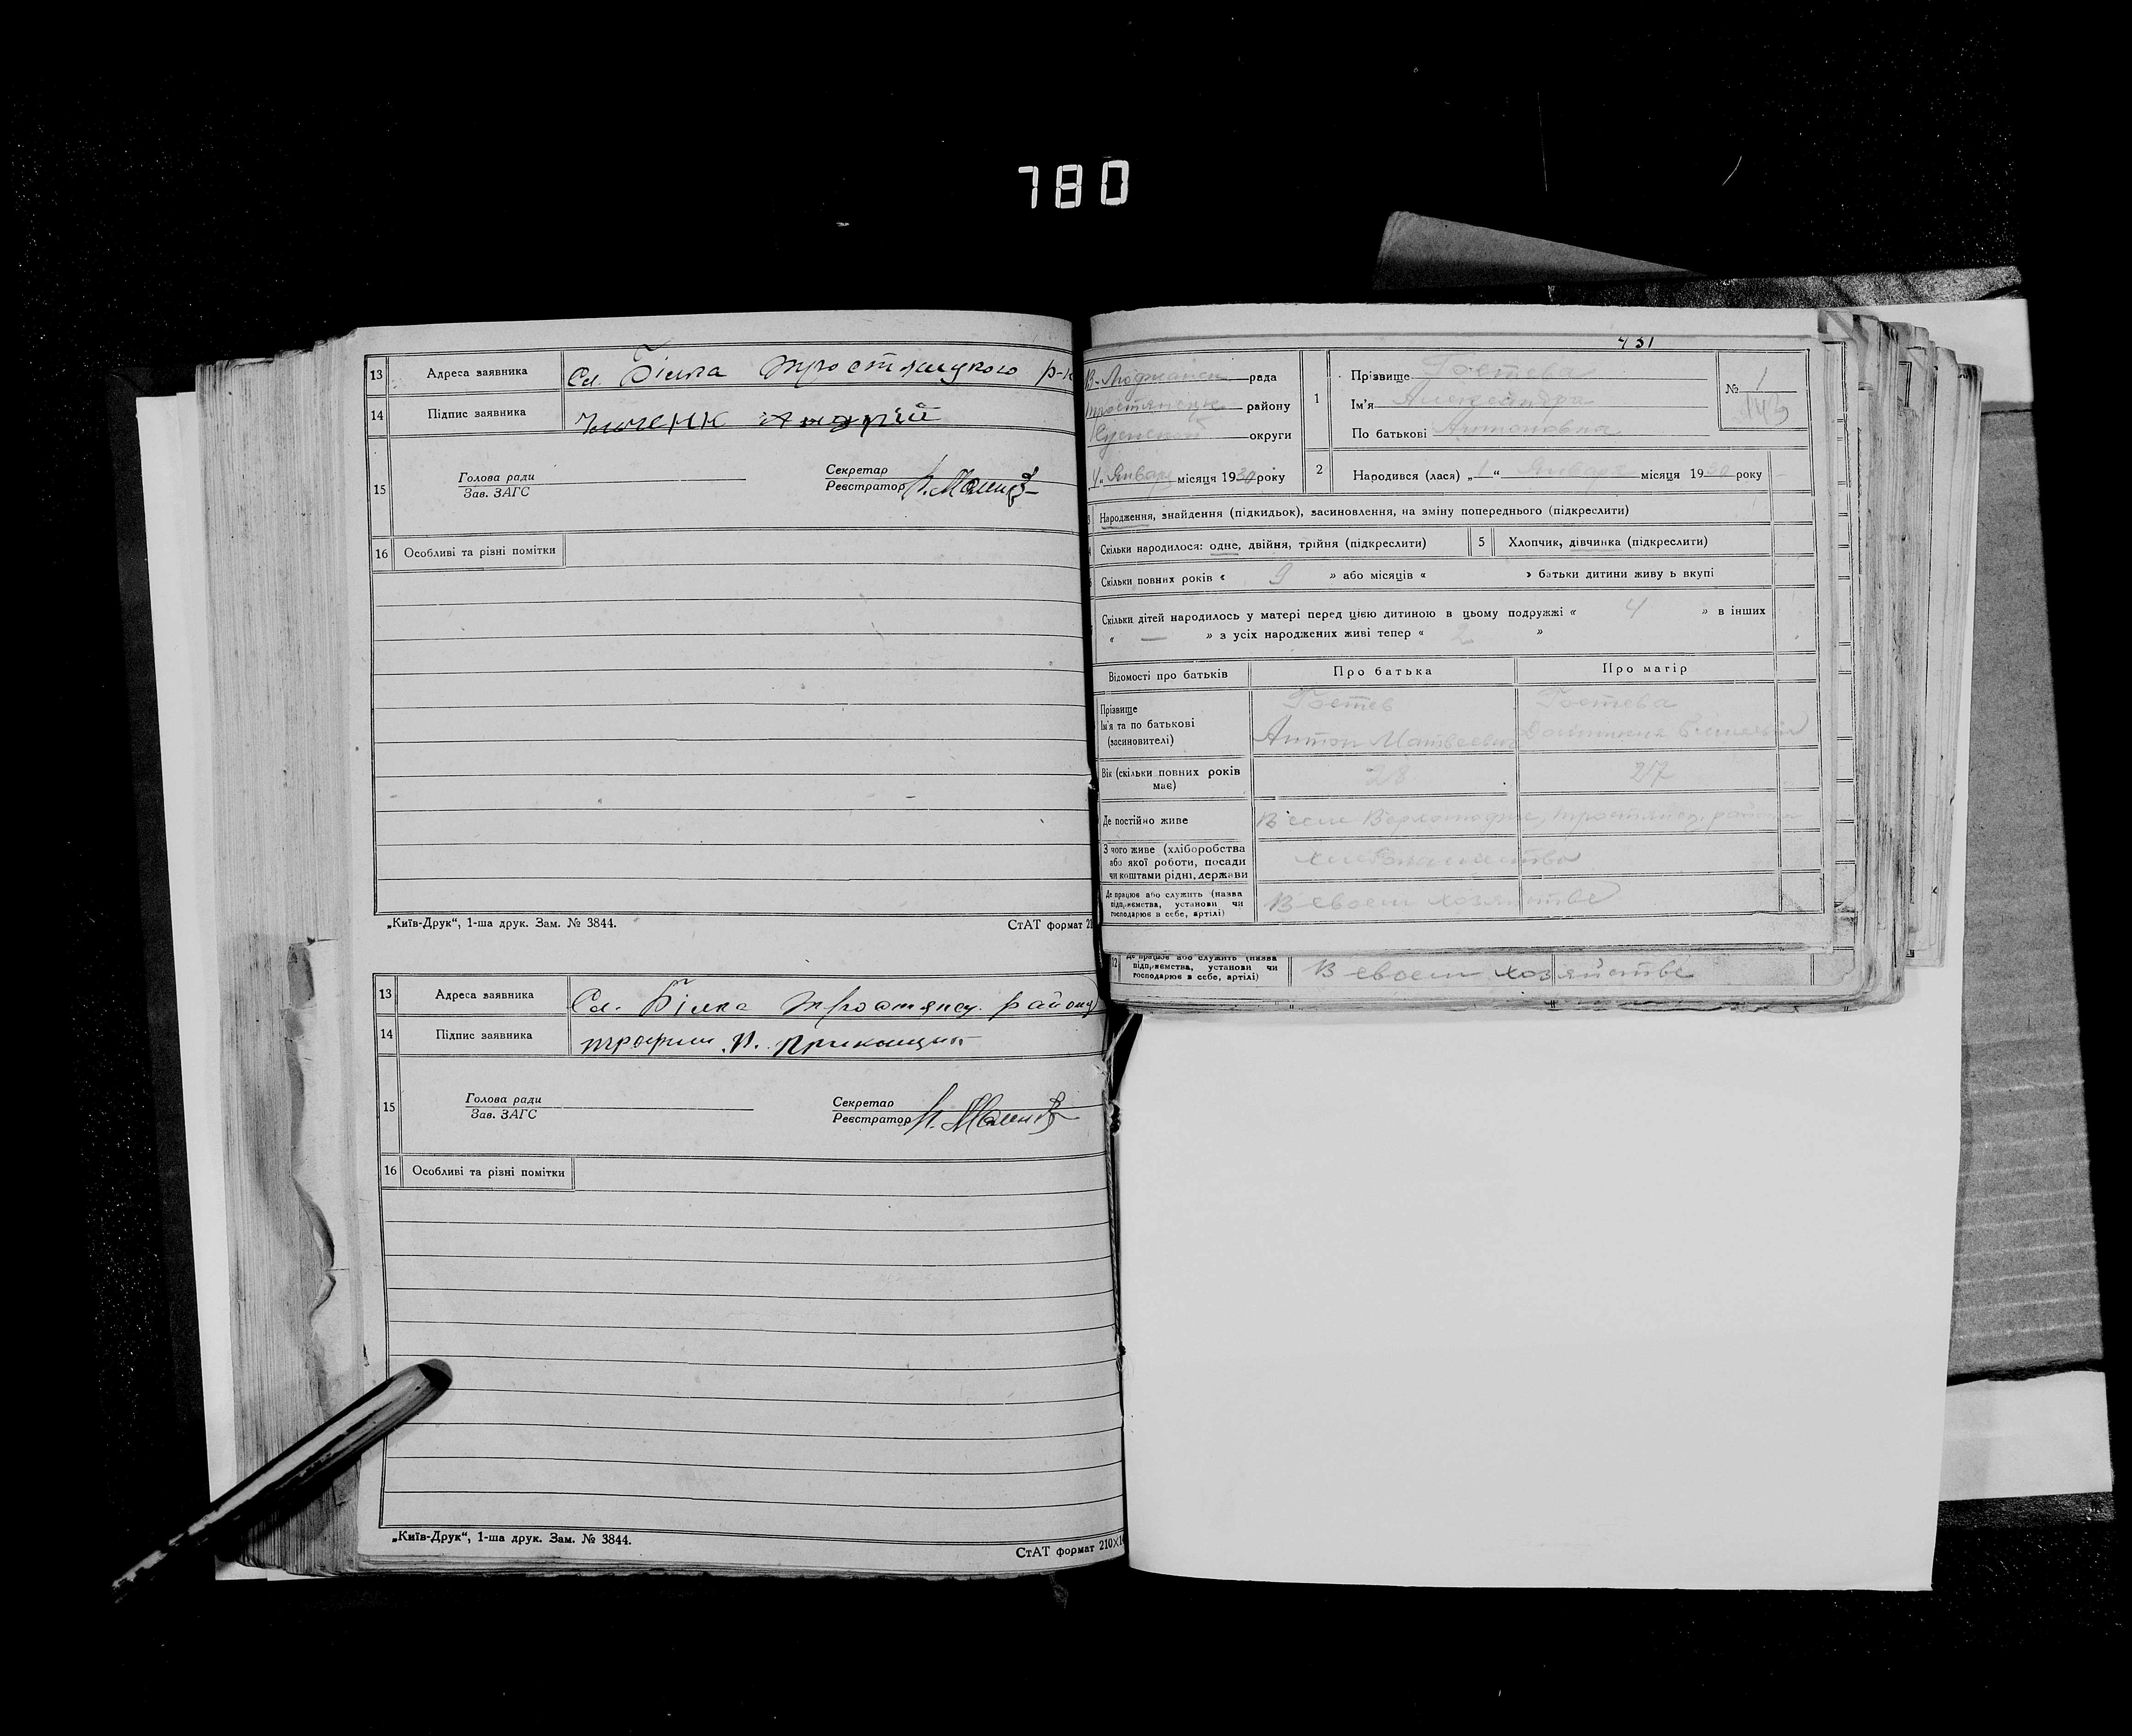 780
13 Адреса заявника Сл. Білка Тростянецкого р-н
14 Підпис заявника Андрій
15 Голова ради
Зав. ЗАГС
Секретар
Реєстратор
16 Особливі та різні помітки
„Київ-Друк“, 1-ша друк. Зам. № 3844. СтАТ формат 21
13 Адреса заявника Сл. Білка Тростянец. району
14 Підпис заявника Трофим П.
15 Голова ради
Зав. ЗАГС
Секретар
Реєстратор
16 Особливі та різні помітки
„Київ-Друк“, 1-ша друк. Зам. № 3844.
СтАТ формат 210×1
431
рада
району
округи
4 „ Января місяця 1930 року
1 Прізвище Гостева
Ім'я Александра
По батькові Антоновна
№ 1
2 Народився (лася) „ 1 “ Января місяця 1930 року
Народження, знайдення (підкидьок), засиновлення, на зміну попереднього (підкреслити)
Скільки народилося: одне, двійня, трійня (підкреслити) 5 Хлопчик, дівчинка (підкреслити)
Скільки повних років « 9 » або місяців « » батьки дитини живу ь вкупі
Скільки дітей народилось у матері перед цією дитиною в цьому подружжі « 4 » в інших
« — » з усіх народжених живі тепер « 2 »
Відомості про батьків Про батька Про матір
Прізвище Гостев Гостева
Ім'я та по батькові
(засиновителі) Антон Матвеевич
Вік (скільки повних років
має) 28 27
Де постійно живе В селе
З чого живе (хліборобства
або якої роботи, посади
чи коштами рідні, держави хлебопашество
Де працює або служить (назва
підприємства, установи чи
господарює в себе, артілі) В своем хозяйстве
12 Де працює або служить (назва
підприємства, установи чи
господарює в себе, артілі) В своем хозяйстве